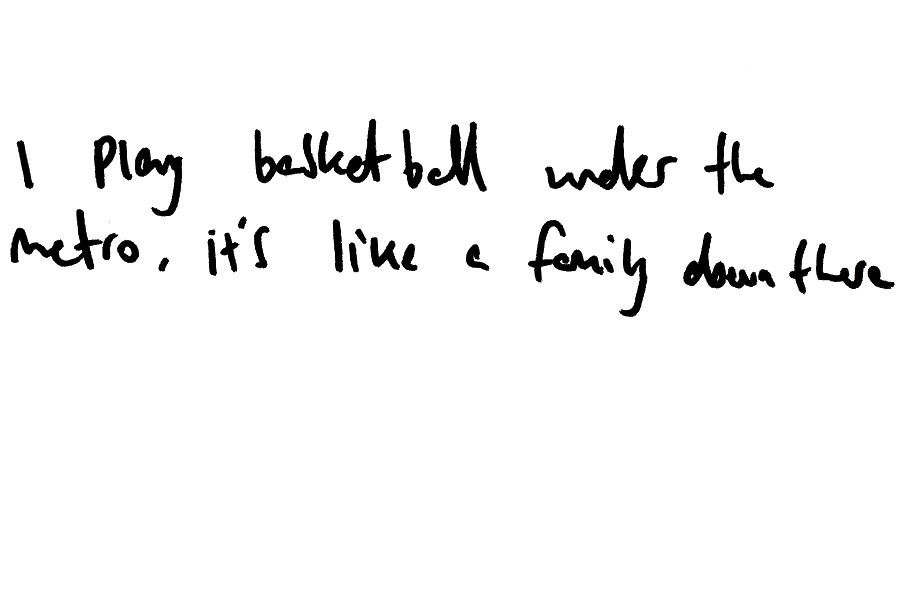 I play basketball under the
metro. it's like a family down there